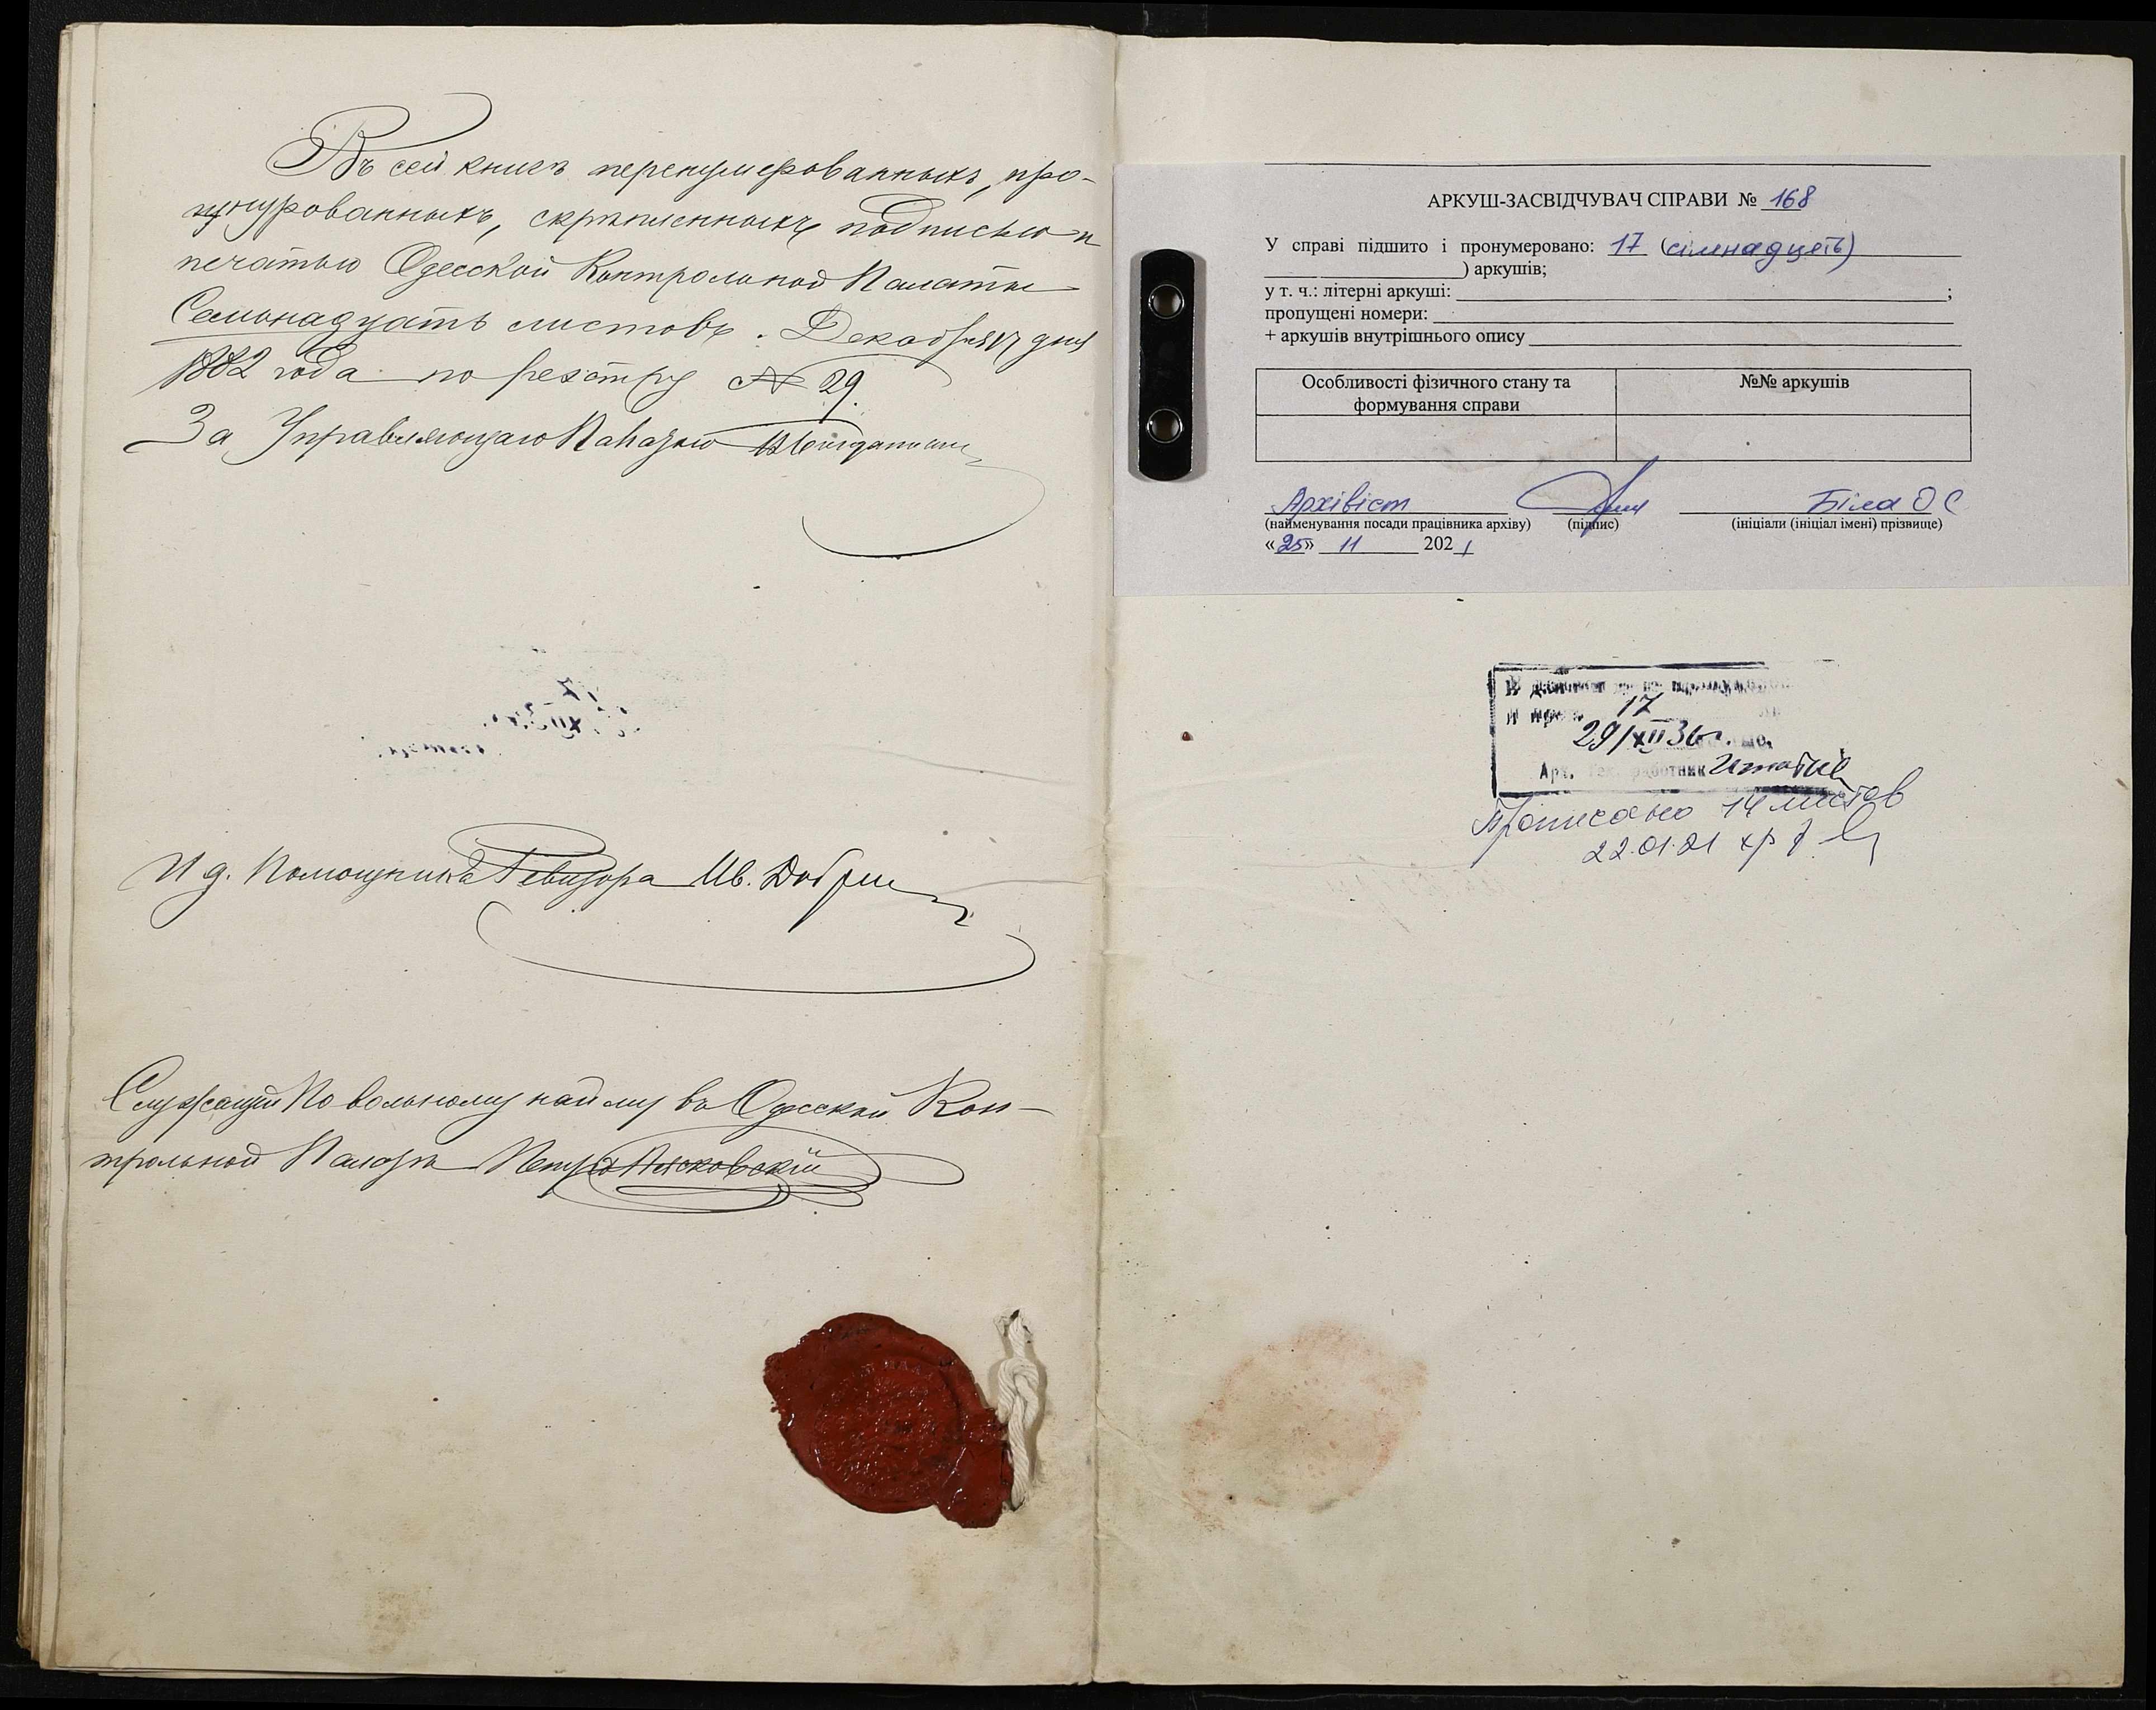 Въ сей книгѣ перенумерованныхъ, про-
шнурованныхъ, скрѣпленныхъ подписью и
печатью Одесской Контрольной Палаты
Семьнадцать листовъ. Декабря 17 дня
1882 года по реэстру № 29.
За Управляющаго Палатою
И д. Помощника Ревизора Ив.
Служащій По вольному найму въ Одесской Кон-
трольной Палатѣ Петръ Лясковскій
АРКУШ-ЗАСВІДЧУВАЧ СПРАВИ № 168
У справі підшито і пронумеровано: 17 (сімнадцять)
) аркушів;
у т. ч.: літерні аркуші: ;
пропущені номери:
+ аркушів внутрішнього опису
Особливості фізичного стану та
формування справи
№№ аркушів
Архівіст Біла О С
(найменування посади працівника архіву) (підпис) (ініціали (ініціал імені) прізвище)
«25» 11 2021
17
29/XII 36 г.
Арх. тех. работник
Прописано 14 листов
22.01.81